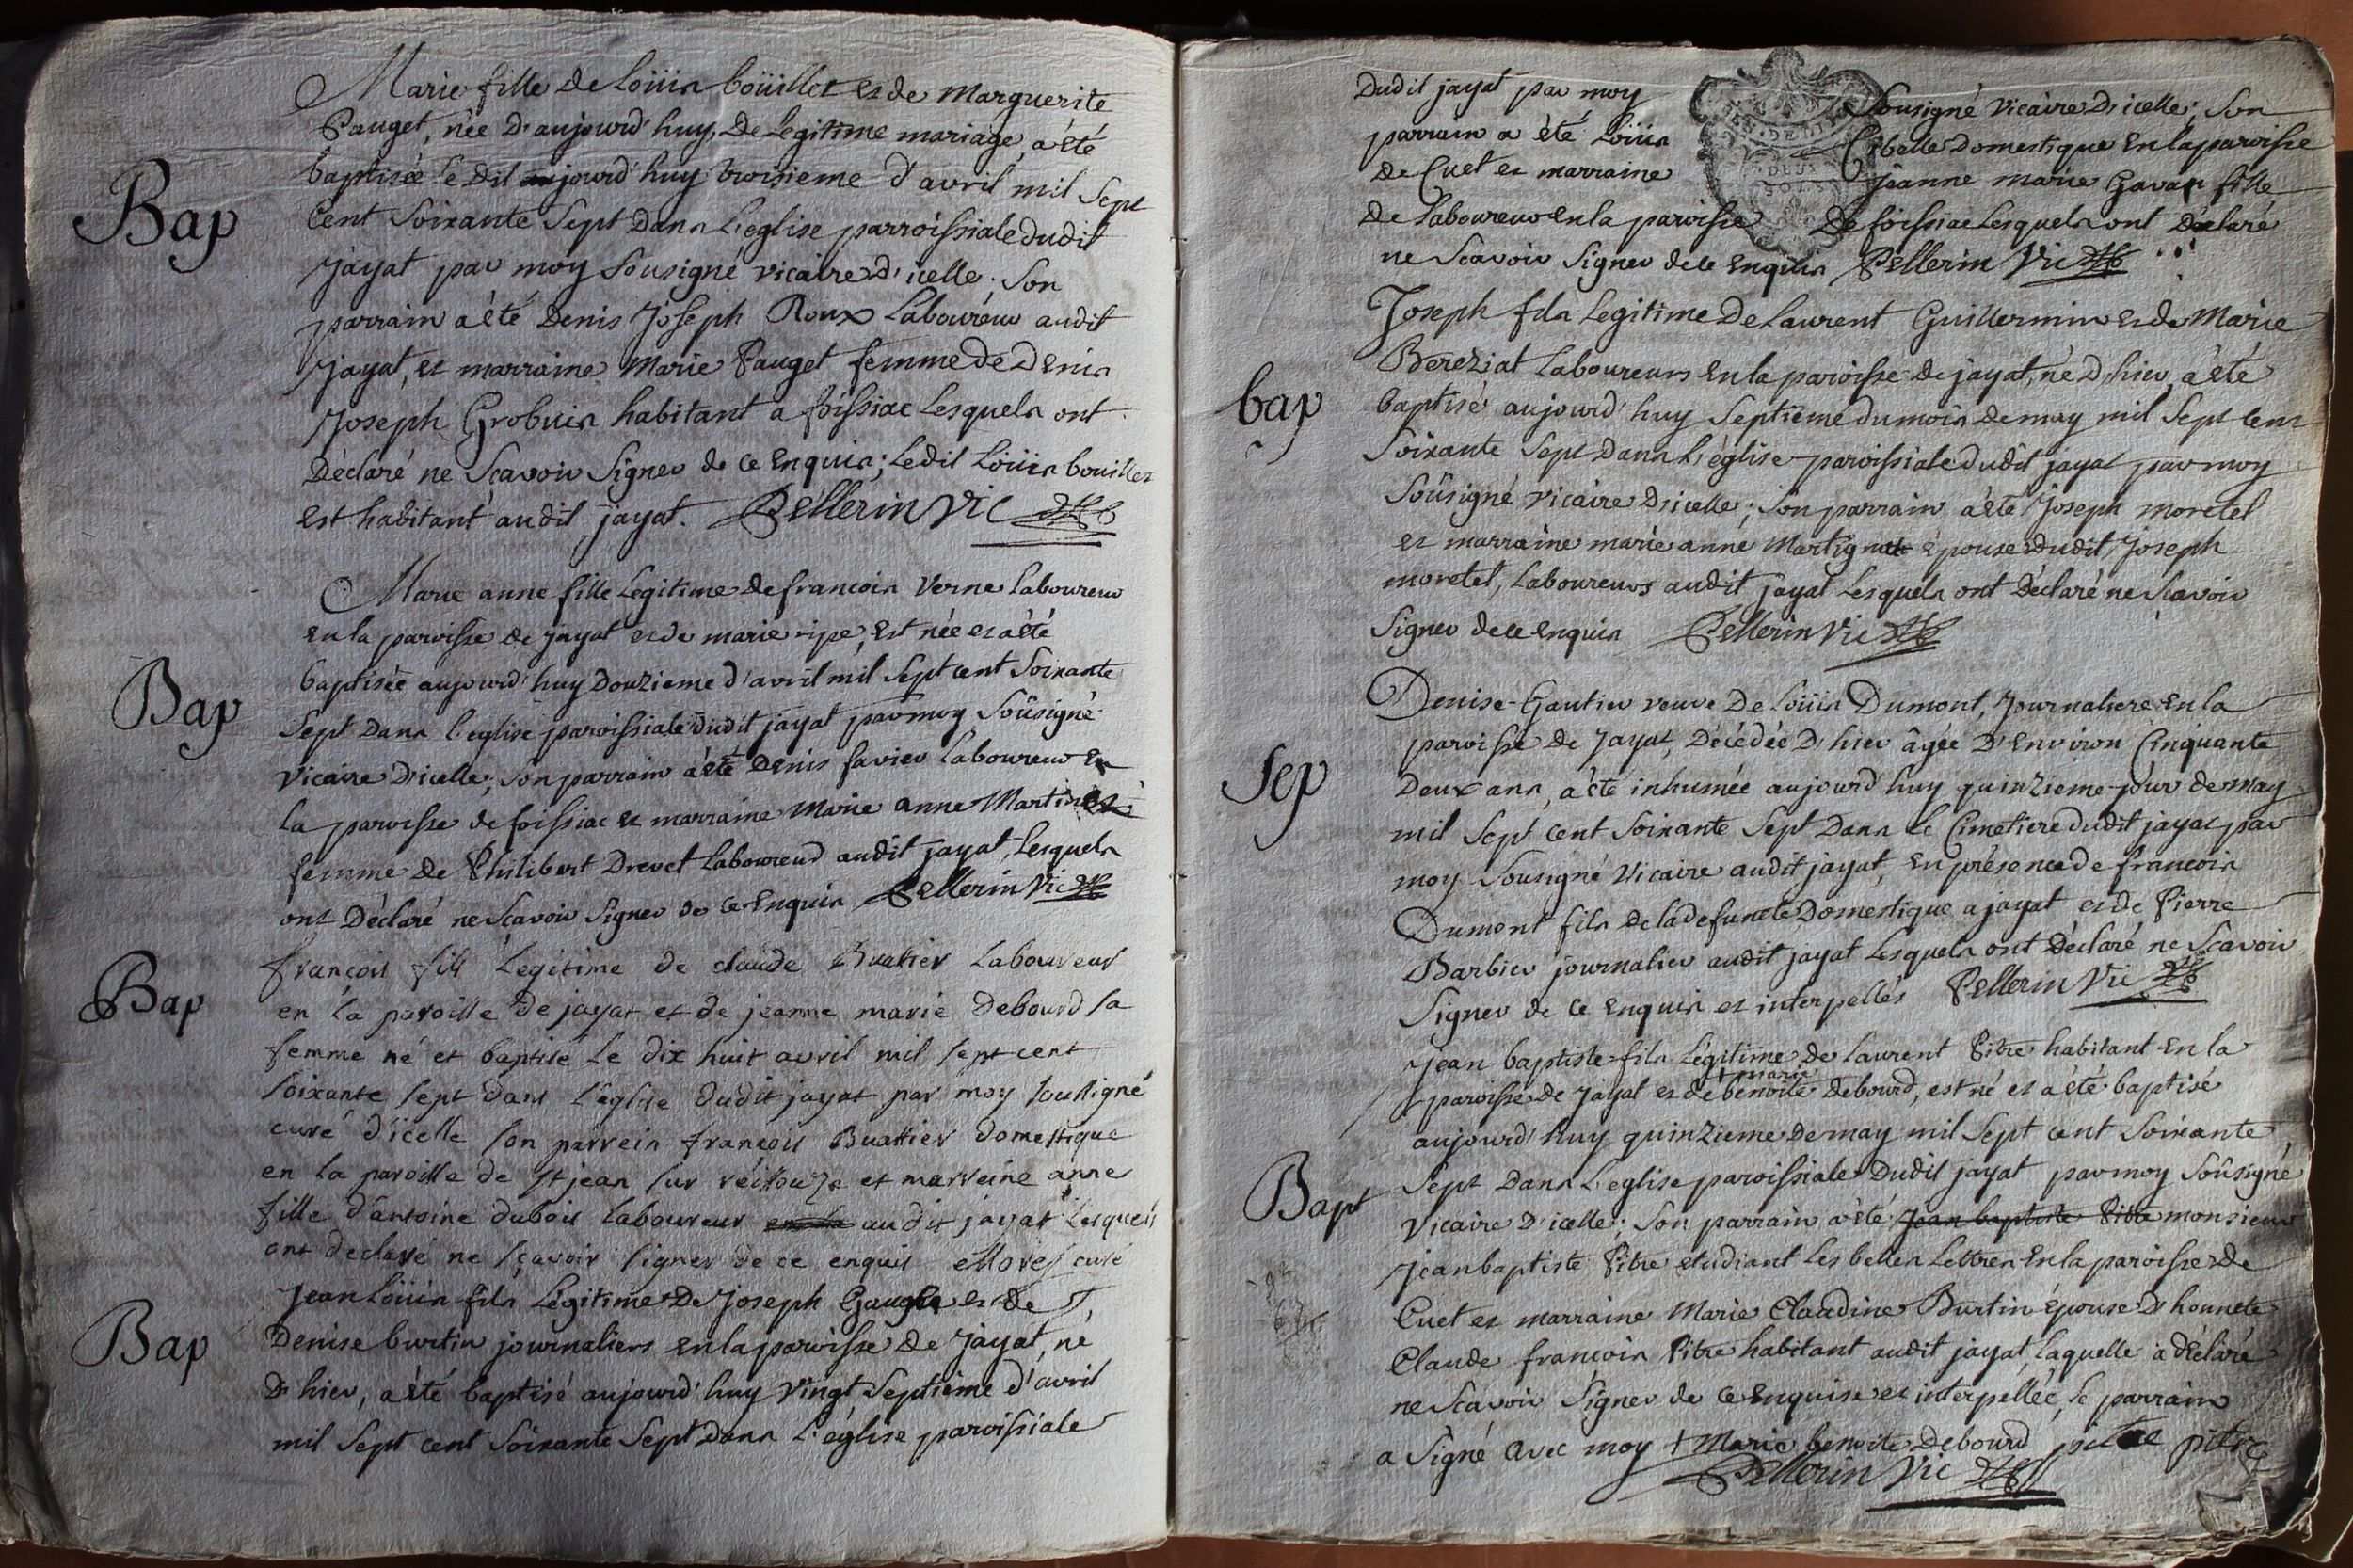 Marie fille de Loüis boüillet et de Marguerite
Pauget, née D'aujourd'huy, De Legitime mariage, a été
Bap
baptisée le dit aujourd'huy troisieme d'avril mil Sept
Cent Soixante Sept Dans L'eglise parroissiale dudit
Jayat par moy Sousigné vicaire D'icelle. Son
parrain a été Denis Joseph Roux Laboureur audit
Jayat, et marraine Marie Pauget femme de Denis
Joseph Grobuis habitant a foissiac Lesquels ont
Déclaré ne Scavoir Signer de ce Enquis; Ledit Loüis bouillet
est habitant audit jayat. Pellerin Vic
Marie anne fille Legitime de francois Verne Laboureur
en la paroisse de Jayat et de marie ripe, Est née et a été
Bap
baptisée aujourd'huy Douzieme d'avril mil Sept cent Soixante
Sept Dans l'eglise paroissiale dudit jayat par moy Soûsigné
Vicaire D'icelle; Son parrain a été Denis favier Laboureur en
la paroisse de foissiac et marraine Marie anne
femme de Philibert Drevet Laboureur audit jayat, Lesquels
ont Déclaré ne Scavoir Signer de ce Enquis Pellerin Vic
françois fils Legitime de claude Buatier Laboureur
Bap
en la paroisse de jayat et de jeanne marie Debourd sa
femme né et baptisé le dix huit avril mil sept cent
soixante sept dans l'église dudit jayat par moy soussigné
curé d'icelle son parrein françois Buattier domestique
en la paroisse de st jean sur reissouze et marreine anne
fille d'antoine dubois laboureur en la audit jayat Lesquels
ont declaré ne sçavoir signer de ce enquis curé
Jean Loüis fils Légitime De Joseph et de
Bap
Denise burtin journaliers en la paroisse de Jayat, né
D'hier, a été baptisé aujourd'huy Vingt Septième d'avril
mil Sept cent Soixante Sept Dans L'église paroissiale
Dudit jayat par moy Sousigné Vicaire D'icelle; Son
parrain a été Loüis Cibelle Domestique en la paroisse
de Cuet et marraine Jeanne marie Gavan fille
de Laboureur en la paroisse De foissiac Lesquels ont Déclaré
ne Scavoir Signer de ce Enquis Pellerin Vic
Joseph fils Legitime De Laurent Guillermin et de Marie
bap
Bereziat Laboureurs en la paroisse de jayat, né D'hier, a été
baptisé aujourd'huy Septieme du mois de may mil Sept Cent
Soixante Sept Dans L'église paroissiale dudit jayat par moy
Soûsigné vicaire D'icelle; Son parrain a été Joseph moretel
et marraine marie anne épouse dudit Joseph
moretel, Laboureurs audit jayat Lesquels ont Déclaré ne Scavoir
Signer de ce Enquis Pellerin Vic
Denise Gautier veuve De Loüis Dumont, Journaliere en la
paroisse de Jayat, Décédée D'hier âgée D'Environ Cinquante
Sep
Deux ans, a été inhumée aujourd'huy quinzieme jour de may
mil Sept cent Soixante Sept Dans le Cimetiere dudit jayat par
moy Sousigné Vicaire audit jayat, en présence de francois
Dumont fils de la defuncte Domestique a jayat et de Pierre
Barbier journalier audit jayat Lesquels ont Déclaré ne Scavoir
Signer de ce Enquis et interpellés Pellerin Vic
Jean baptiste fils Légitime de Laurent Pitre habitant en la
+ marie
paroisse de Jayat et de benoite Debourd, est né et a été baptisé
aujourd'huy quinzieme de may mil Sept cent Soixante
Bapt
Sept Dans L'eglise paroissiale Dudit jayat par moy Soûsigné
Vicaire D'icelle; Son parrain a été Jean baptiste Pitre monsieur
Jean baptiste Pitre etudiant Les belles Lettres en la paroisse de
Cuet et marraine Marie Claudine Burtin épouse D'honnete
Claude francois Pitre habitant audit jayat, laquelle a déclaré
ne Scavoir Signer de ce Enquise et interpellée, le parrain
a Signé avec moy + Marie benoite Debourd pitre
Pellerin Vic